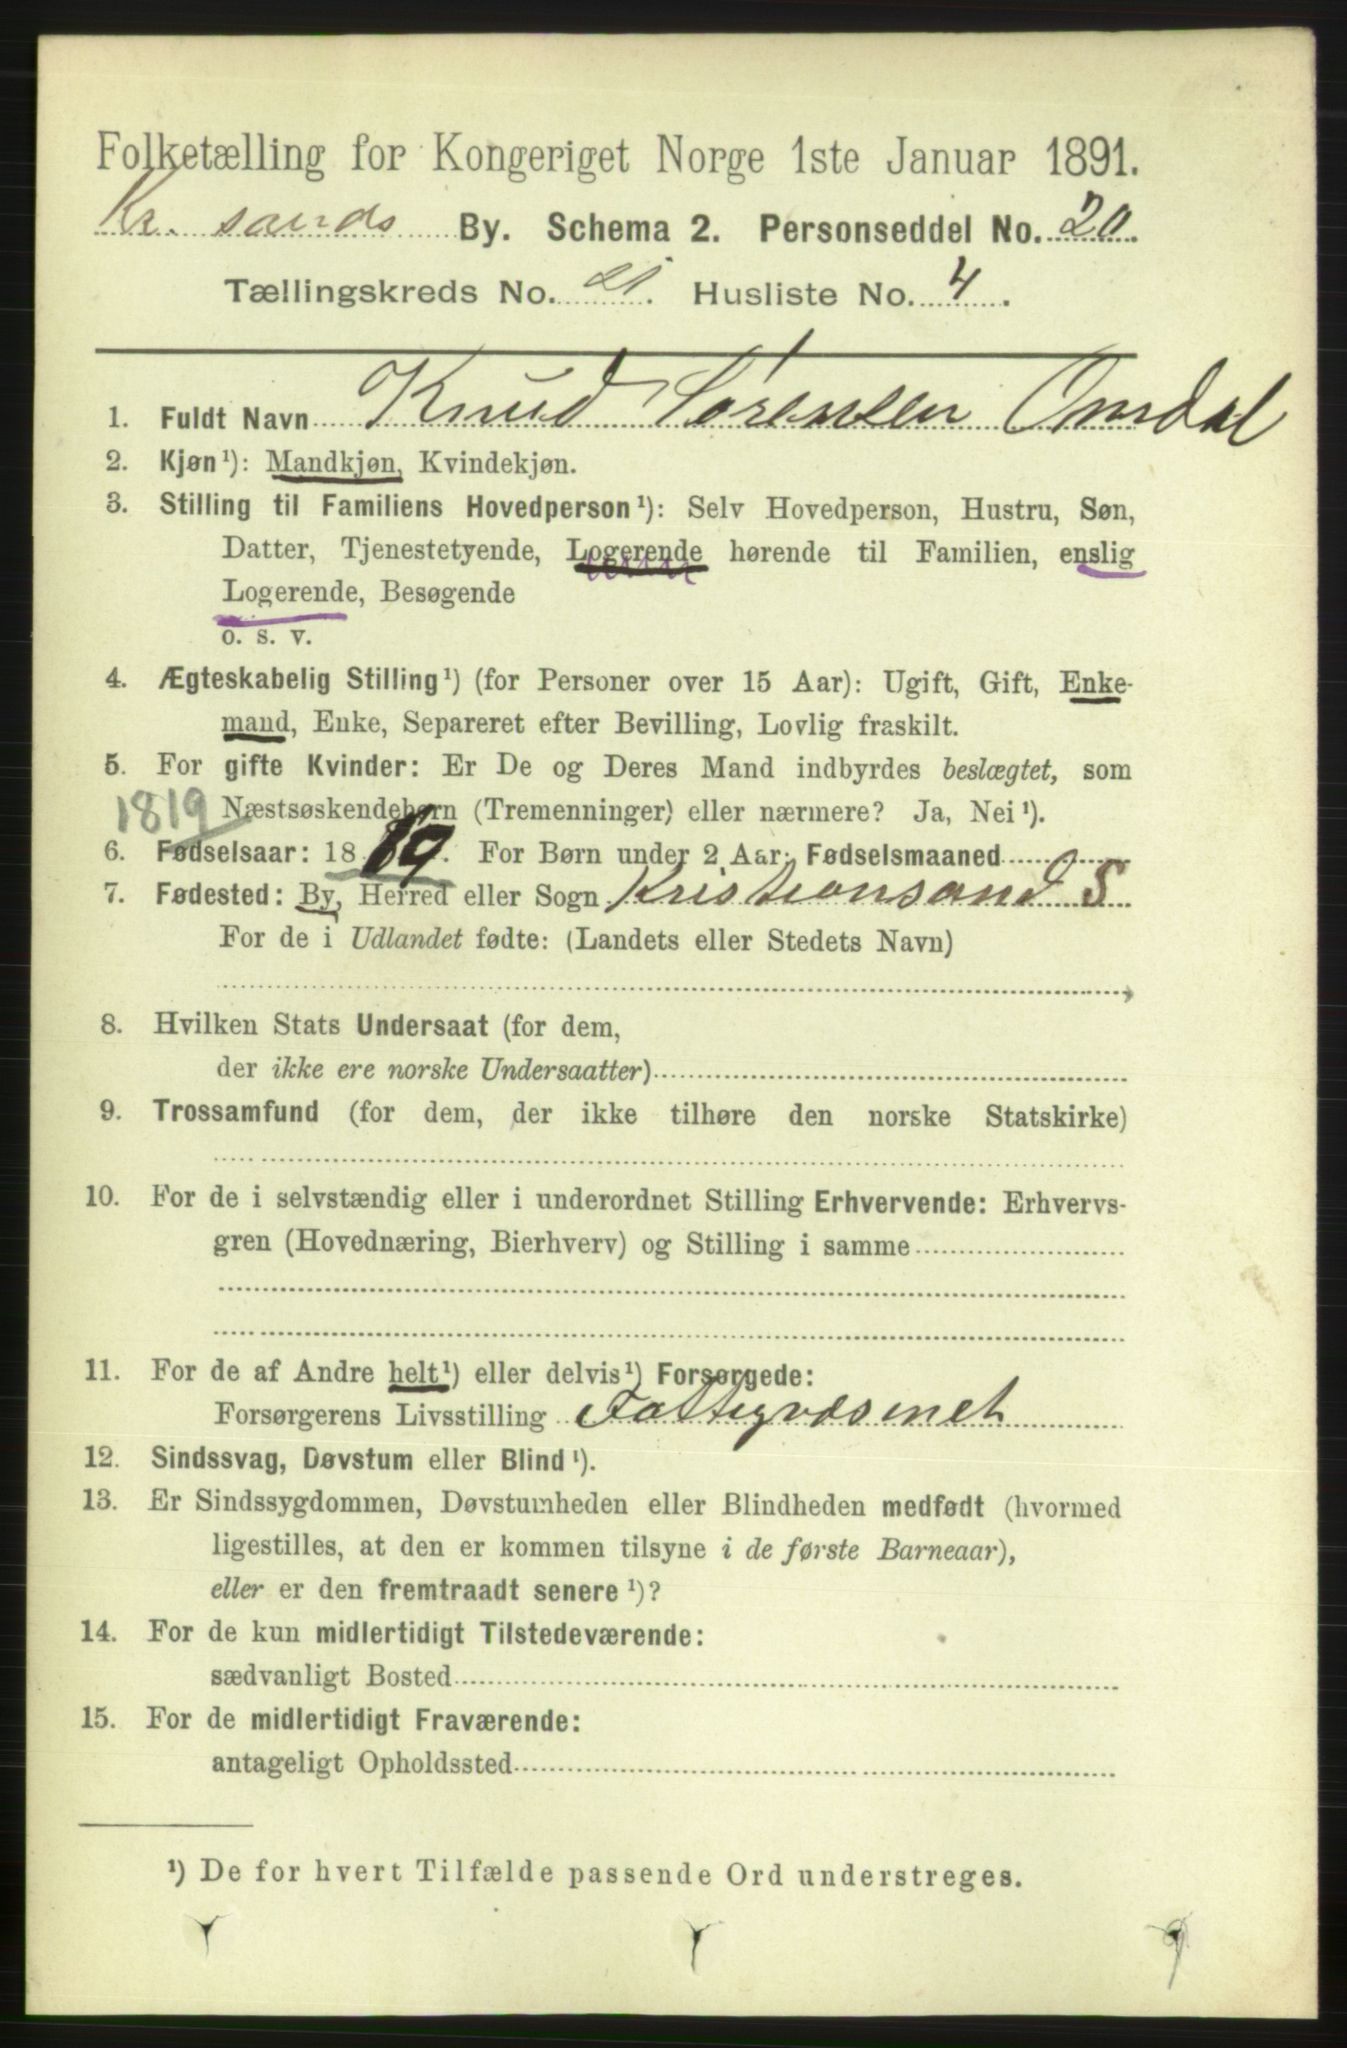 Folketælling for Kongeriget Norge 1ste Januar 1891.
Kr. sands By. Schema 2. Personseddel No. 20.
Tællingskreds No. 21. Husliste No. 4.
1. Fuldt Navn Knud Sørensen Omdal
2. Kjøn¹): Mandkjøn, Kvindekjøn.
3. Stilling til Familiens Hovedperson¹): Selv Hovedperson, Hustru, Søn,
Datter, Tjenestetyende, Logerende hørende til Familien, enslig
Logerende, Besøgende
o. s. v.
4. Ægteskabelig Stilling¹) (for Personer over 15 Aar): Ugift, Gift, Enke-
mand, Enke, Separeret efter Bevilling, Lovlig fraskilt.
5. For gifte Kvinder: Er De og Deres Mand indbyrdes beslægtet, som
1819 Næstsøskendebørn (Tremenninger) eller nærmere? Ja, Nei¹).
6. Fødselsaar: 1819. For Børn under 2 Aar: Fødselsmaaned
7. Fødested: By, Herred eller Sogn Kristiansand S
For de i Udlandet fødte: (Landets eller Stedets Navn)
8. Hvilken Stats Undersaat (for dem,
der ikke ere norske Undersaatter)
9. Trossamfund (for dem, der ikke tilhøre den norske Statskirke)
10. For de i selvstændig eller i underordnet Stilling Erhvervende: Erhvervs-
gren (Hovednæring, Bierhverv) og Stilling i samme
11. For de af Andre helt¹) eller delvis¹) Forsørgede:
Forsørgerens Livsstilling Fattigvæsenet
12. Sindssvag, Døvstum eller Blind¹).
13. Er Sindssygdommen, Døvstumheden eller Blindheden medfødt (hvormed
ligestilles, at den er kommen tilsyne i de første Barneaar),
eller er den fremtraadt senere¹)?
14. For de kun midlertidigt Tilstedeværende:
sædvanligt Bosted
15. For de midlertidigt Fraværende:
antageligt Opholdssted
¹) De for hvert Tilfælde passende Ord understreges.